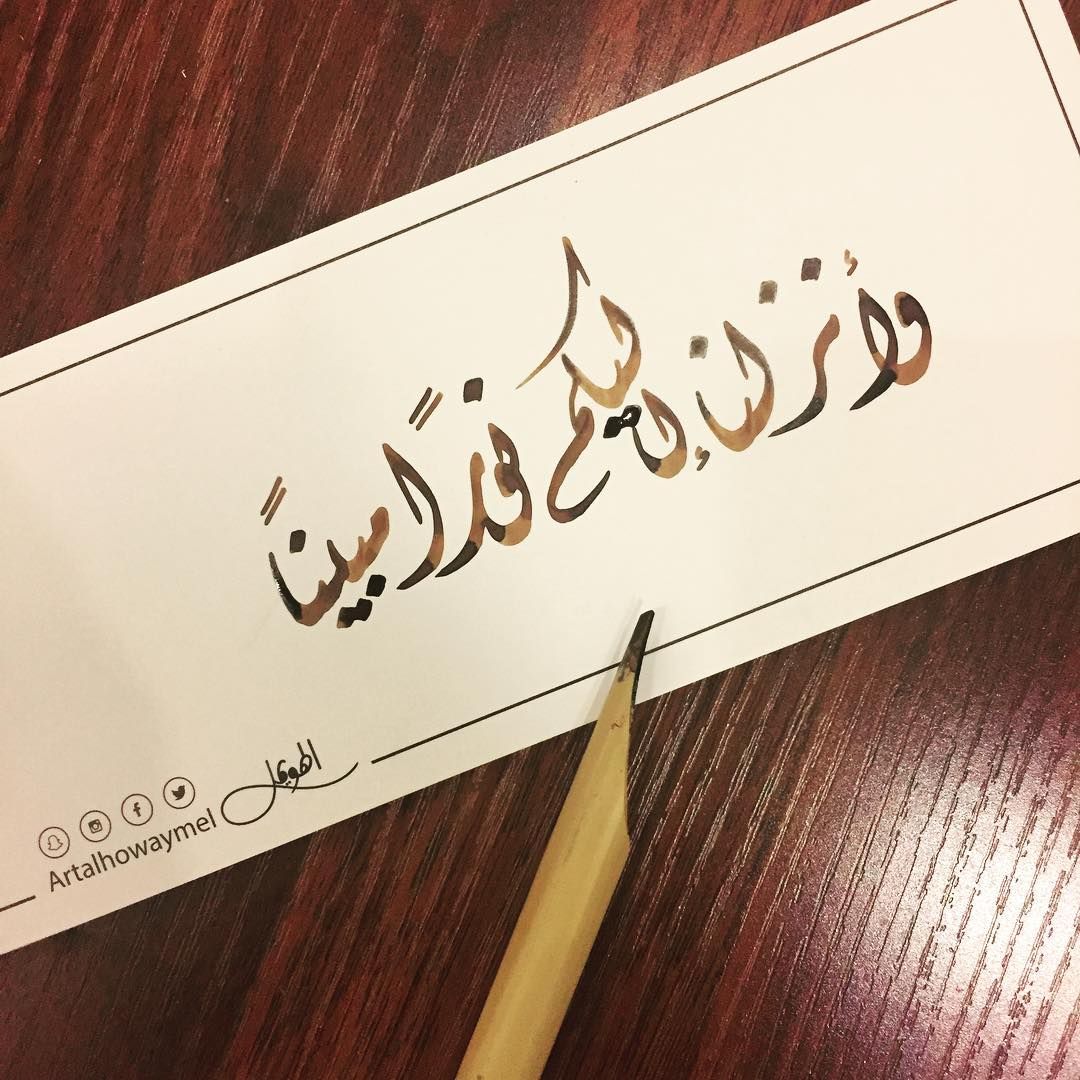 وأنزلنا إليكم نورًا مبينًا
الهويمل
Artalhowaymel